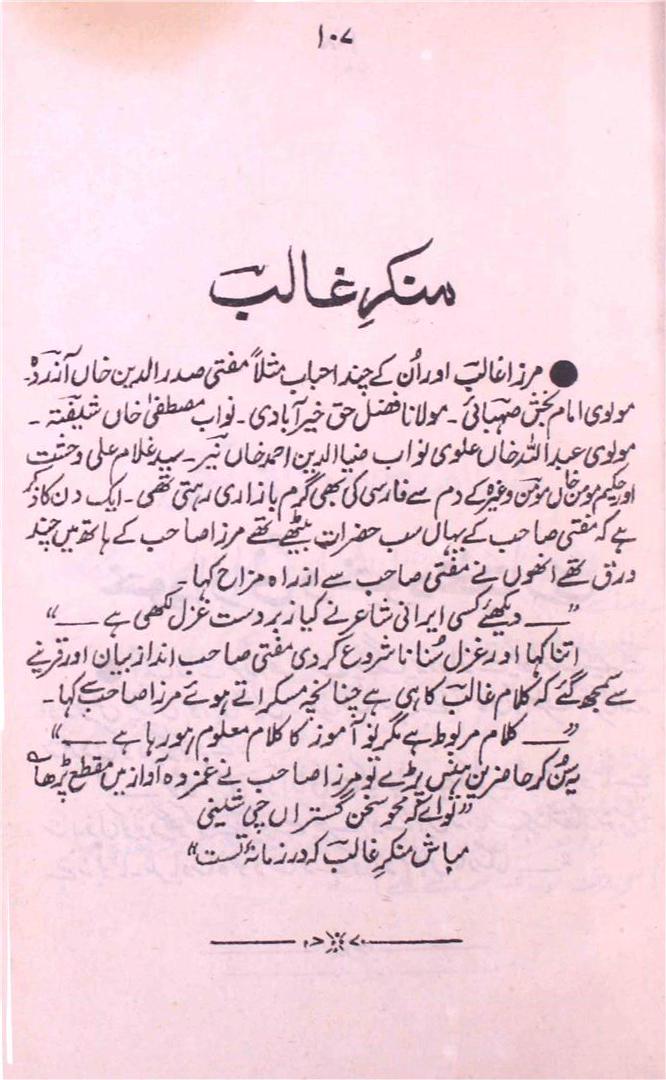 ۱۰۷
منکرِ غالب
● مرزا غالبؔ اور اُن کے چند احباب مثلاً مفتی صدر الدین خاں آزردہ۔
مولوی امام بخش صہبائی۔ مولانا فضل حق خیر آبادی۔ نواب مصطفیٰ خاں شیفتہ۔
مولوی عبد اللہ خاں علوی نواب ضیا الدین احمد خاں نیّر۔ سید غلام علی وحشت
اور حکیم مومن خاں مومن وغیرہ کے دم سے فارسی کی بھی گرم بازاری رہتی تھی۔ ایک دن کا ذکر
ہے کہ مفتی صاحب کے یہاں سب حضرات بیٹھے تھے مرزا صاحب کے ہاتھ میں چند
ورق تھے انھوں نے مفتی صاحب سے از راہ مزاح کہا۔
”— دیکھئے کسی ایرانی شاعر نے کیا زبردست غزل لکھی ہے —“
اتنا کہا اور غزل سُنانا شروع کر دی مفتی صاحب انداز بیان اور قرینے
سے سمجھ گئے کہ کلام غالبؔ کا ہی ہے چنانچہ مسکراتے ہوئے مرزا صاحب سے کہا۔
”— کلام مربوط ہے مگر نو آموز کا کلام معلوم ہو رہا ہے —“
یہ سُن کر حاضرین ہنس پڑے تو مرزا صاحب نے غمزدہ آواز میں مقطع پڑھا؎
”تو اے کہ محو سخن گستراں چی شینی
مباش منکرِ غالبؔ کہ در زمانۂ تست“